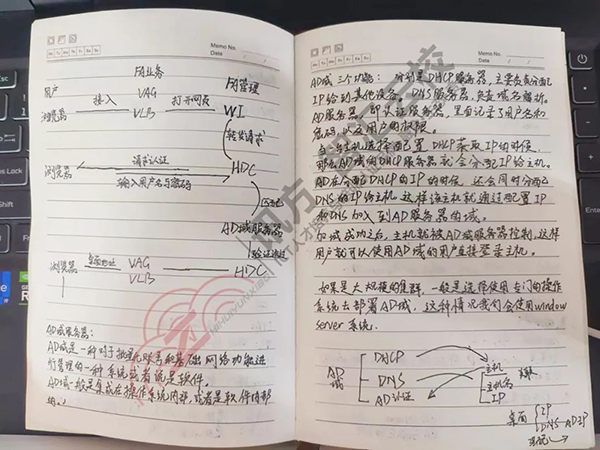 Memo No.
Date
FA业务
FA管理
用户
浏览器
接入
VAG
VLB
打开网页
WI
转发请求
浏览器
请求认证
输入用户名与密码
HDC
AD域服务器
验证通过
浏览器
VAG
VLB
HDC
AD域服务器:
AD域是一种对于批量化账号和基础网络功能进
行管理的一种系统或者说是软件。
AD域一般是集成在操作系统内部,或者是软件内部
的。
Memo No.
Date
AD域三个功能: 分别是DHCP服务器,主要负责分配
IP给到其他设备。DNS服务器,负责域名解析。
AD服务器,即认证服务器,里面记录了用户名和
密码,以及用户的权限。
当主机选择配置DHCP获取IP的时候,
那么AD域的DHCP服务器就会分配IP给主机。
AD在分配DHCP的IP的时候,还会同时分配
DNS的IP给主机,这样该主机就通过配置IP
和DNS加入到AD服务器的域。
加域成功之后,主机就被AD域服务器控制,这样
用户就可以使用AD域的用户直接登录主机。
如果是大规模的集群,一般是选择使用专门的操作
系统去部署AD域,这种情况我们会使用window
server系统。
AD
域
DHCP
DNS
AD认证
主机
主机名
IP
桌面
IP
DNS AD IP